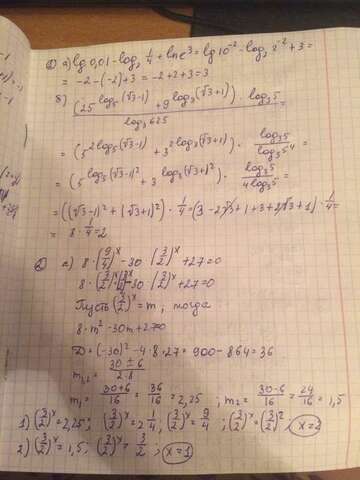 ① а) lg 0,01 - log₂ 1/4 + ln e³ = lg 10⁻² - log₂ 2⁻² + 3 =
= -2 - (-2) + 3 = -2 + 2 + 3 = 3
б) (25^(log₅(√3-1)) + 9^(log₃(√3+1))) · log₃5 / log₃625 =
= (5^(2log₅(√3-1)) + 3^(2log₃(√3+1))) · log₃5 / log₃5⁴ =
= (5^(log₅(√3-1)²) + 3^(log₃(√3+1)²)) · log₃5 / 4log₃5 =
= ((√3-1)² + (√3+1)²) · 1/4 = (3 - 2√3 + 1 + 3 + 2√3 + 1) · 1/4 =
= 8 · 1/4 = 2
② а) 8 · (9/4)ˣ - 30 · (3/2)ˣ + 27 = 0
8 · (3/2)ˣ · (3/2)ˣ - 30 · (3/2)ˣ + 27 = 0
Пусть (3/2)ˣ = m, тогда
8 · m² - 30m + 27 = 0
D = (-30)² - 4 · 8 · 27 = 900 - 864 = 36
m₁,₂ = (30 ± 6) / 2·8
m₁ = (30+6)/16 = 36/16 = 2,25 ; m₂ = (30-6)/16 = 24/16 = 1,5
1) (3/2)ˣ = 2,25; (3/2)ˣ = 2 1/4; (3/2)ˣ = 9/4 ; (3/2)ˣ = (3/2)², x=2
2) (3/2)ˣ = 1,5; (3/2)ˣ = 3/2; x=1